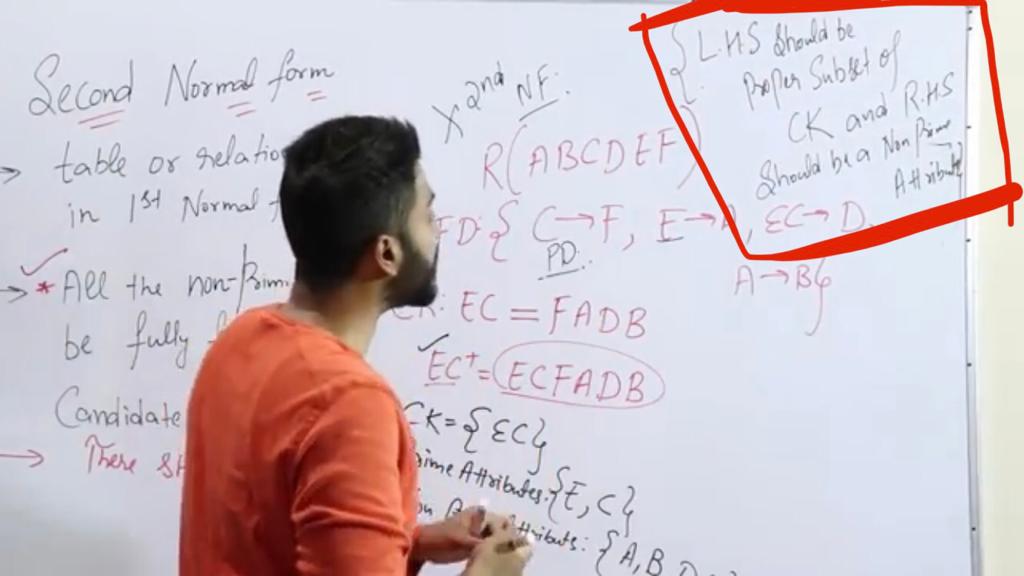 Second Normal form
→ table or relatio
in 1st Normal
→ * All the non-prim
be fully
Candidate
→ There
X 2nd NF.
R(ABCDEF)
FD: { C→F, E→A, EC→D,
A→B}
PD.
EC = FADB
EC⁺ = ECFADB
CK = {EC}
ime Attributes: {E, C}
ttributs: {A, B, D
{ L.H.S Should be
Proper Subset of
CK and R.H.S
Should be a Non Prime
Attribute}